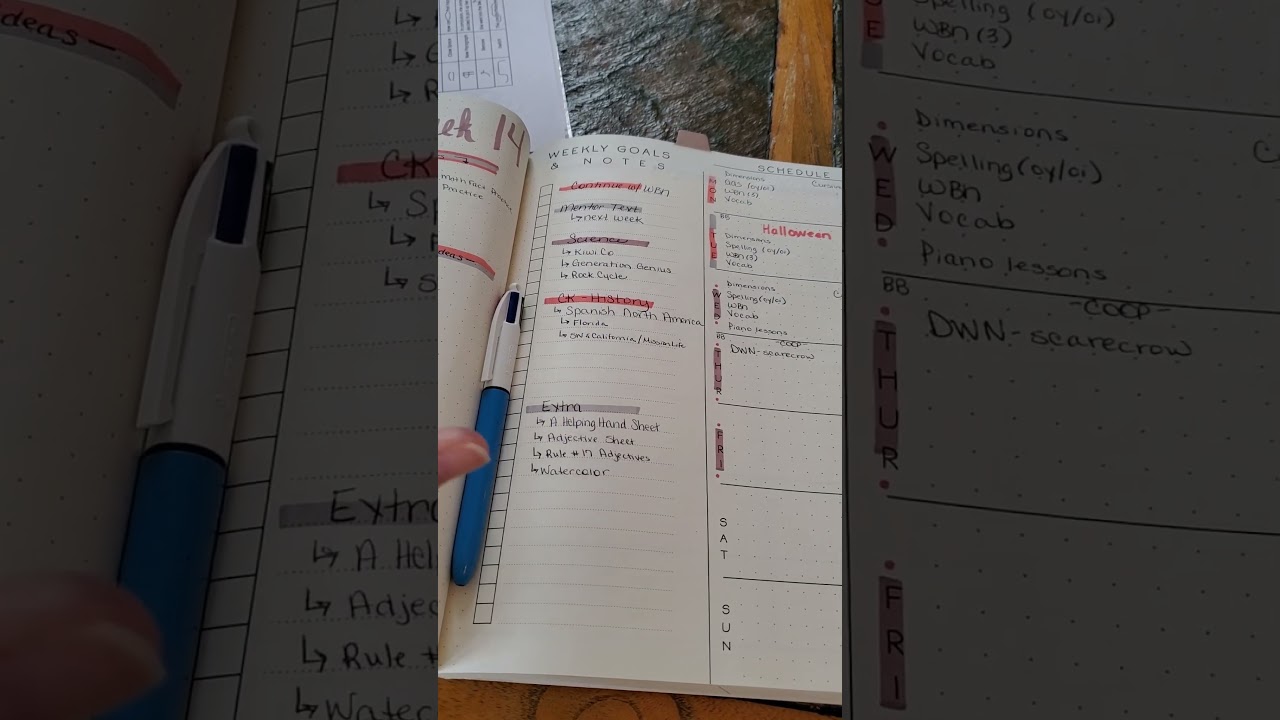 ek 14
Math Fact Practice
Practice
deas
WEEKLY GOALS
& NOTES
Continue w/ WBn
Mentor Text
↳ next week
Science
↳ Kiwi Co
↳ Generation Genius
↳ Rock Cycle
CK - History
↳ Spanish North America
↳ Florida
↳ SW & California/Mission Life
Extra
↳ A Helping Hand Sheet
↳ Adjective Sheet
↳ Rule #17 Adjectives
↳ Watercolor
SCHEDULE
MON
Dimensions
Cursive
WBn (3)
Vocab
BB
Halloween
TUE
Dimensions
Spelling (oy/oi)
WBn (3)
Vocab
WED
Dimensions
Spelling (oy/oi)
WBn
Vocab
Piano lessons
BB
-COOP-
THUR
DWN-scarecrow
FRI
SAT
SUN
deas
CK
Extra
↳ A Hel
↳ Adjec
↳ Rule #
↳ Water
Spelling (oy/oi)
WBn (3)
Vocab
WED
Dimensions
Spelling (oy/oi)
WBn
Vocab
Piano lessons
BB
-COOP-
THUR
DWN-scarecrow
FRI